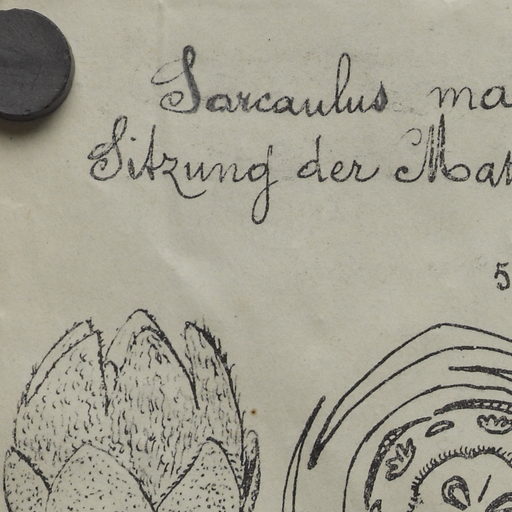 Sarcaulus ma
Sitzung der Mat
5